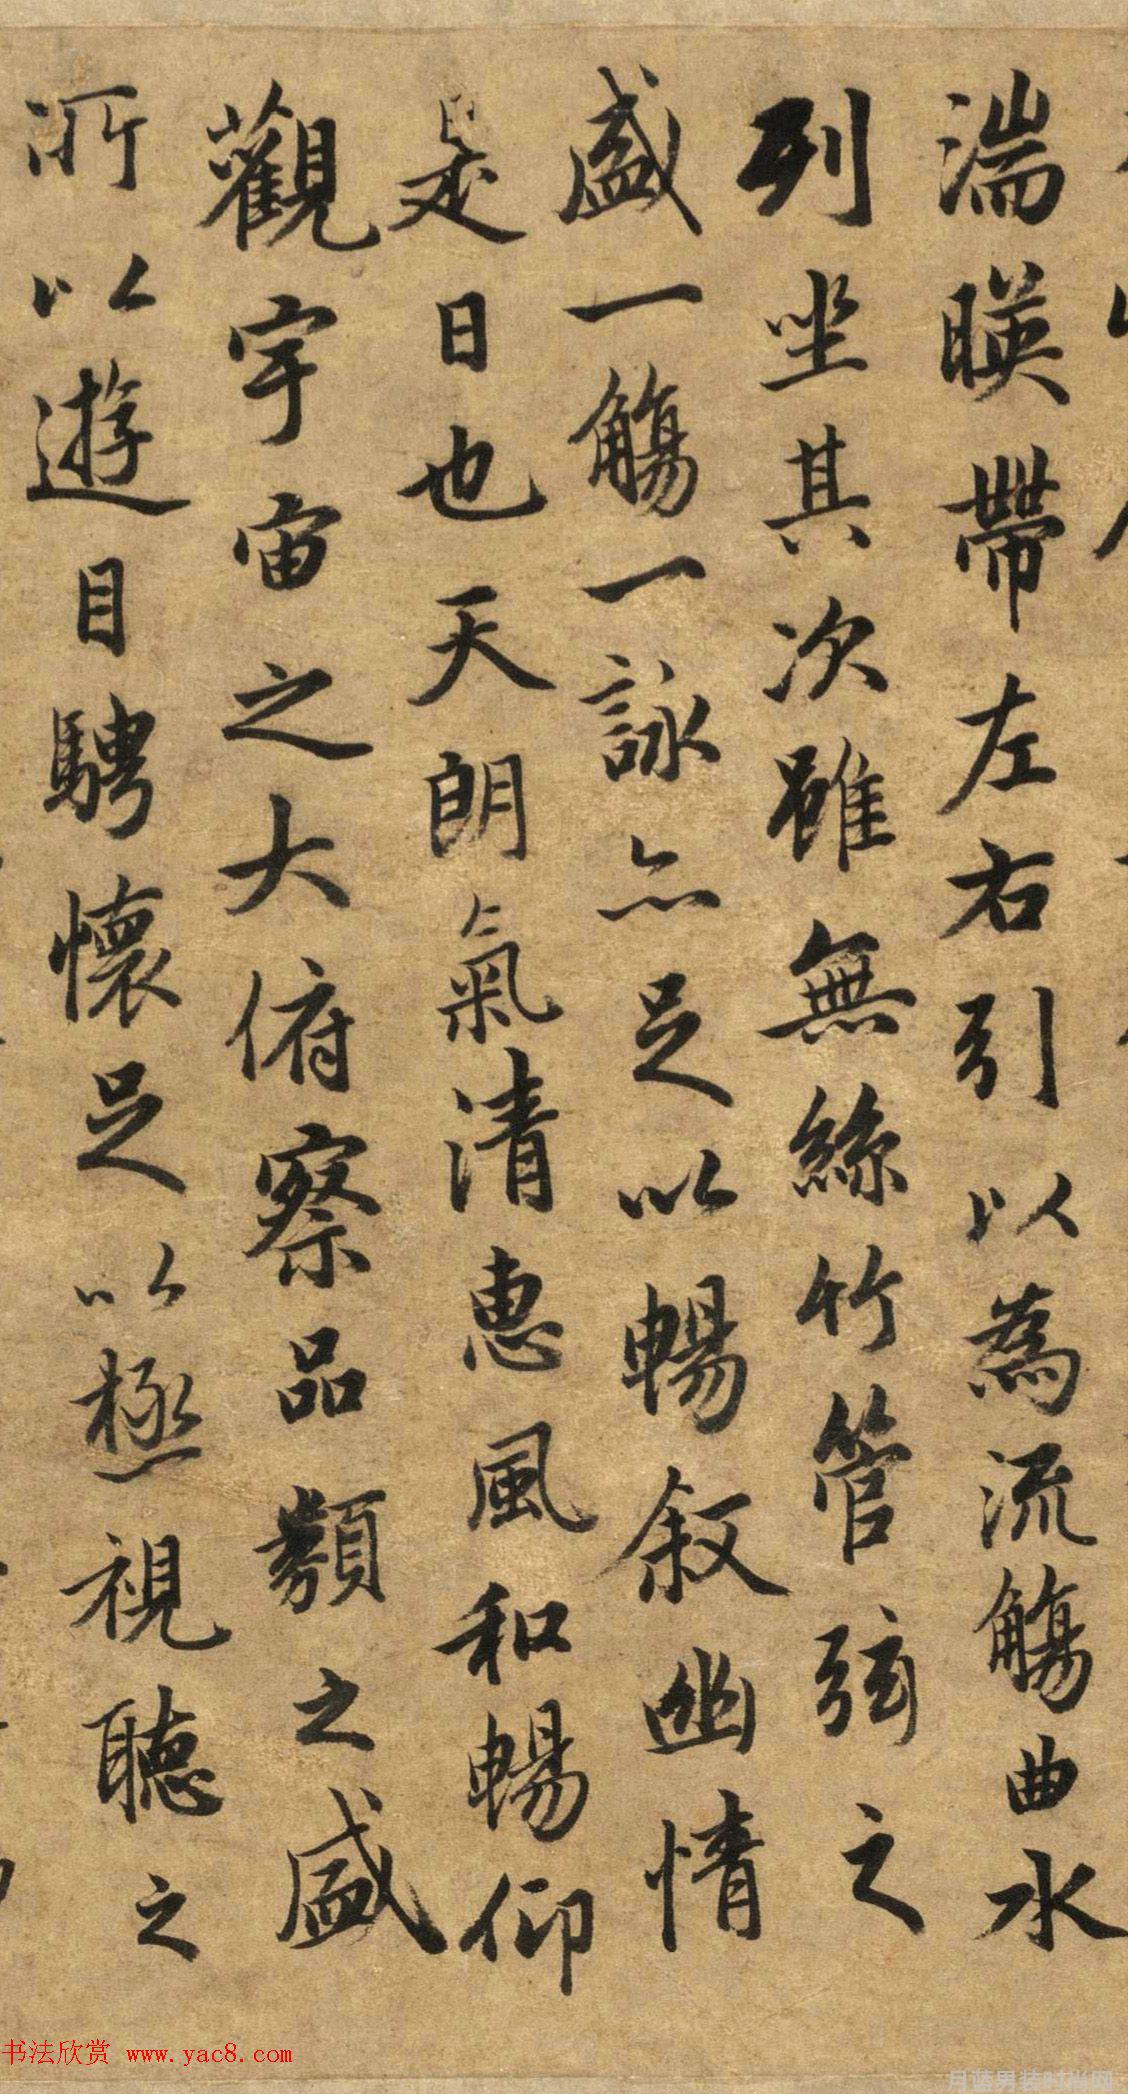 湍暎帶左右引以為流觴曲水
列坐其次雖無絲竹管弦之
盛一觴一詠亦足以暢敘幽情
是日也天朗氣清惠風和暢仰
觀宇宙之大俯察品類之盛
所以遊目騁懷足以極視聽之
书法欣赏 www.yac8.com